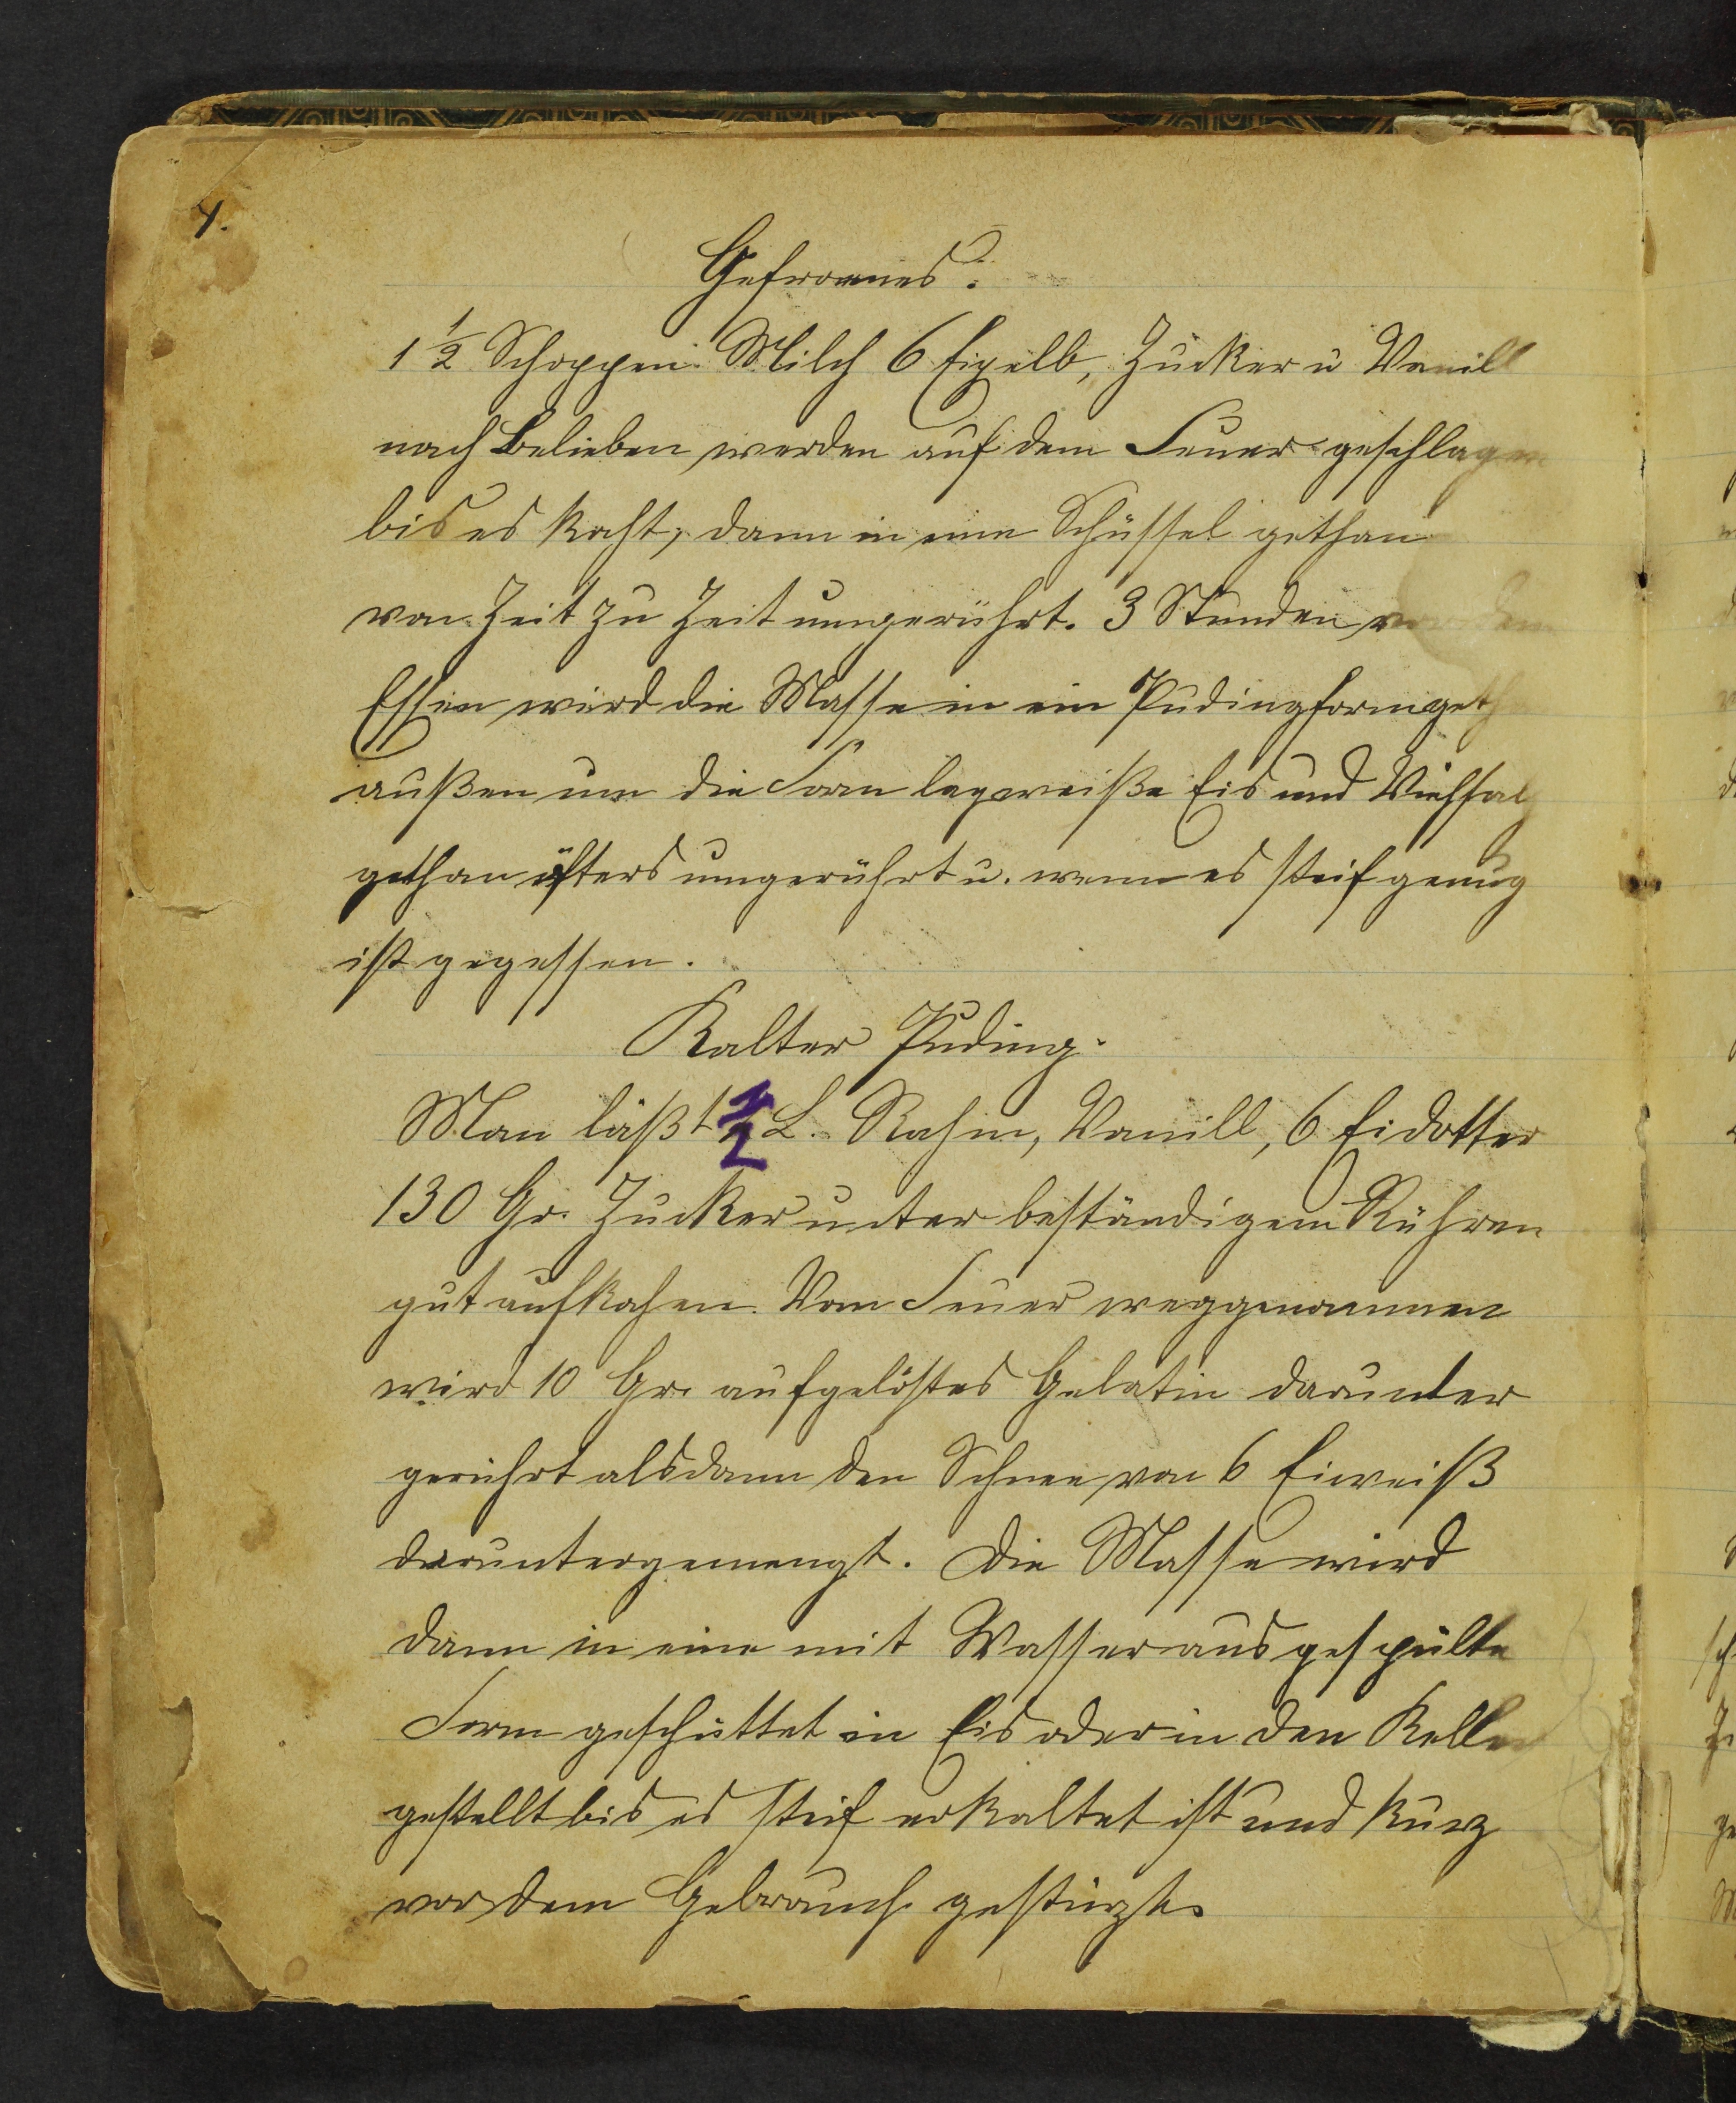 4.
Gefrornes.
1 1/2 Schoppen Milch 6 Eigelb, Zucker u Vanill
nach Belieben werden auf dem Feuer geschlagen
bis es kocht, dann in eine Schüssel gethan
von Zeit zu Zeit umgerührt. 3 Stunden vor dem
Essen wird die Masse in ein Pudingform geth
außen um die Form lagweiße Eis und Viehsalz
gethan öfters umgerührt u. wenn es steif genug
ist gegessen.
Kalter Puding.
Man läßt 1/2 L. Rahm, Vanill, 6 Eidotter
130 Gr. Zucker unter beständigem Rühren
gut aufkochen. Vom Feuer weggenommen
wird 10 Gr. aufgelöstes Gelatin darunter
gerührt alsdann den Schnee von 6 Eiweiß
daruntergemengt. Die Masse wird
dann in eine mit Wasser ausgespülte
Form geschüttet in Eis oder in den Keller
gestellt bis es steif erkaltet ist und kurz
vor dem Gebrauch gestürzt.